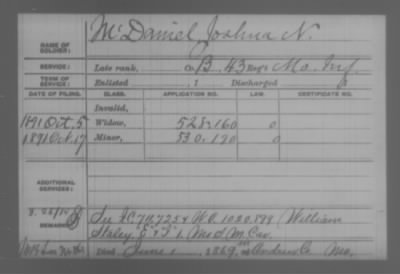 NAME OF SOLDIER: McDaniel, Joshua N.
SERVICE: Late rank, Co. B, 43 Reg't Mo. Inf.
TERM OF SERVICE: Enlisted , 1 Discharged , 1
DATE OF FILING. CLASS. APPLICATION NO. LAW. CERTIFICATE NO.
Invalid,
1891 Oct. 5 Widow, 528.160 0
1891 Oct. 17 Minor, 530.170 0
ADDITIONAL SERVICES:
REMARKS: See I.C. 711,725 & W.O. 1020899 William
Staley, "E" & "I" 1, Mo. S. M. Cav.
Died June 1869 Andrew Co. Mo.